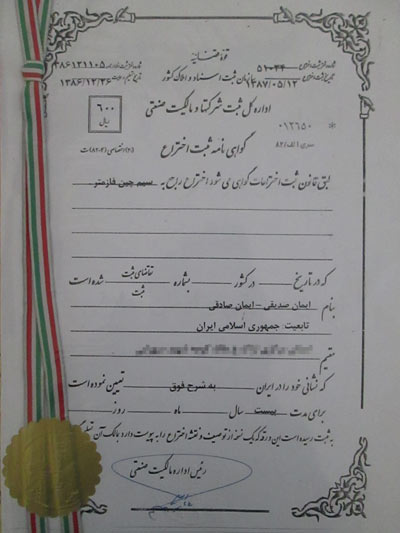 قوهٔ قضائیه
سازمان ثبت اسناد و املاک کشور
۳۸۶۱۲۱۱۰۵
۱۳۸۶/۱۲/۲۶
۵۱۰۴۴
۱۳۸۷/۰۵/۱۲
اداره کل ثبت شرکتها و مالکیت صنعتی
۶۰۰
ریال
۰۱۳۶۵۰ *
سری ۱ الف/۸۲
گواهی نامه ثبت اختراع
طبق قانون ثبت اختراعات گواهی می شود اختراع راجع به سیم چین فازمتر
که در تاریخ در کشور بشماره تقاضای ثبت شده است
ثبت
بنام ایمان صدیقی – ایمان صادقی
تابعیت: جمهوری اسلامی ایران
مقیم
که نشانی خود را در ایران به شرح فوق تعیین نموده است
برای مدت بیست سال ماه روز
به ثبت رسیده است این ورقه که یک نسخه از توصیف و نقشه اختراع را به پیوست دارد بمالک آن
رئیس اداره مالکیت صنعتی